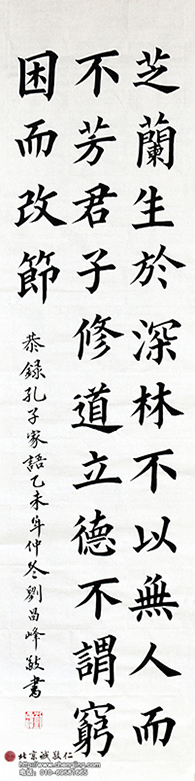 芝蘭生於深林不以無人而
不芳君子修道立德不謂窮
困而改節
恭錄孔子家語乙未年仲冬劉昌峰敬書
北京诚敬仁
http://www.chengjing.com
电话：010-62561665